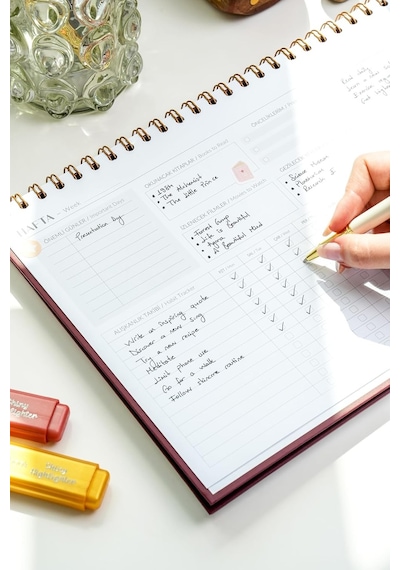 HAFTA - Week
ÖNEMLİ GÜNLER / Important Days
Presentation day
OKUNACAK KİTAPLAR / Books to Read
• 1984
• The Alchemist
• The Little Prince
İZLENECEK FİLMLER / Movies to Watch
• Forrest Gump
• Life is Beautiful
• Agora
• A Beautiful Mind
ÖNCELİKLERİM /
• Science Museum
ALIŞKANLIK TAKİBİ / Habit Tracker
Write an inspiring quote
Discover a new song
Try a new recipe
Meditate
Limit phone use
Go for a walk
Follow skincare routine
Highlighter
Highlighter